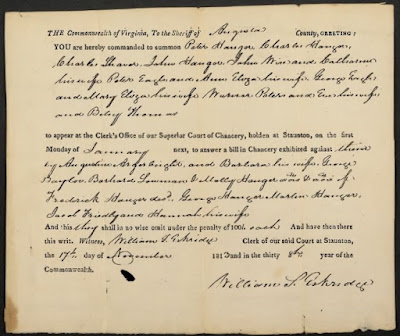 THE Commonwealth of Virginia, To the Sheriff of Augusta County, GREETING:
YOU are hereby commanded to summon Peter Hanger, Charles Hanger,
Charles Shaver, John Hanger, John Wise and Catharine
his wife Peter Eagle and Ann Eliza his wife George
and Mary Eliza his wife Peters and Eve his wife
and Thomas
to appear at the Clerk's Office of our Superior Court of Chancery, holden at Staunton, on the first
Monday of January next, to answer a bill in Chancery exhibited against them
by Augustine Argenbright and Barbara his wife, George
& Molly Hanger adm'x & adm'r of
Frederick Hanger dec'd. George Hanger Martin Hanger,
Jacob Friedley and Hannah his wife
And this they shall in no wise omit under the penalty of 100l. each And have then there
this writ. Witness, William S. Eskridge Clerk of our said Court at Staunton,
the 17th. day of November 1813 and in the thirty 8th. year of the
Commonwealth.
William S. Eskridge